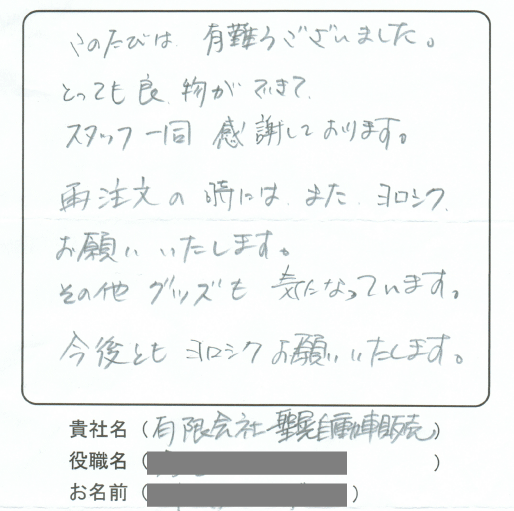 このたびは、有難うございました。
とっても良い物ができて、
スタッフ一同 感謝しております。
再注文の時には、また、ヨロシク
お願いいたします。
その他 グッズも 気になっています。
今後とも ヨロシクお願いいたします。
貴社名（有限会社 自動車販売）
役職名（ ）
お名前（ ）